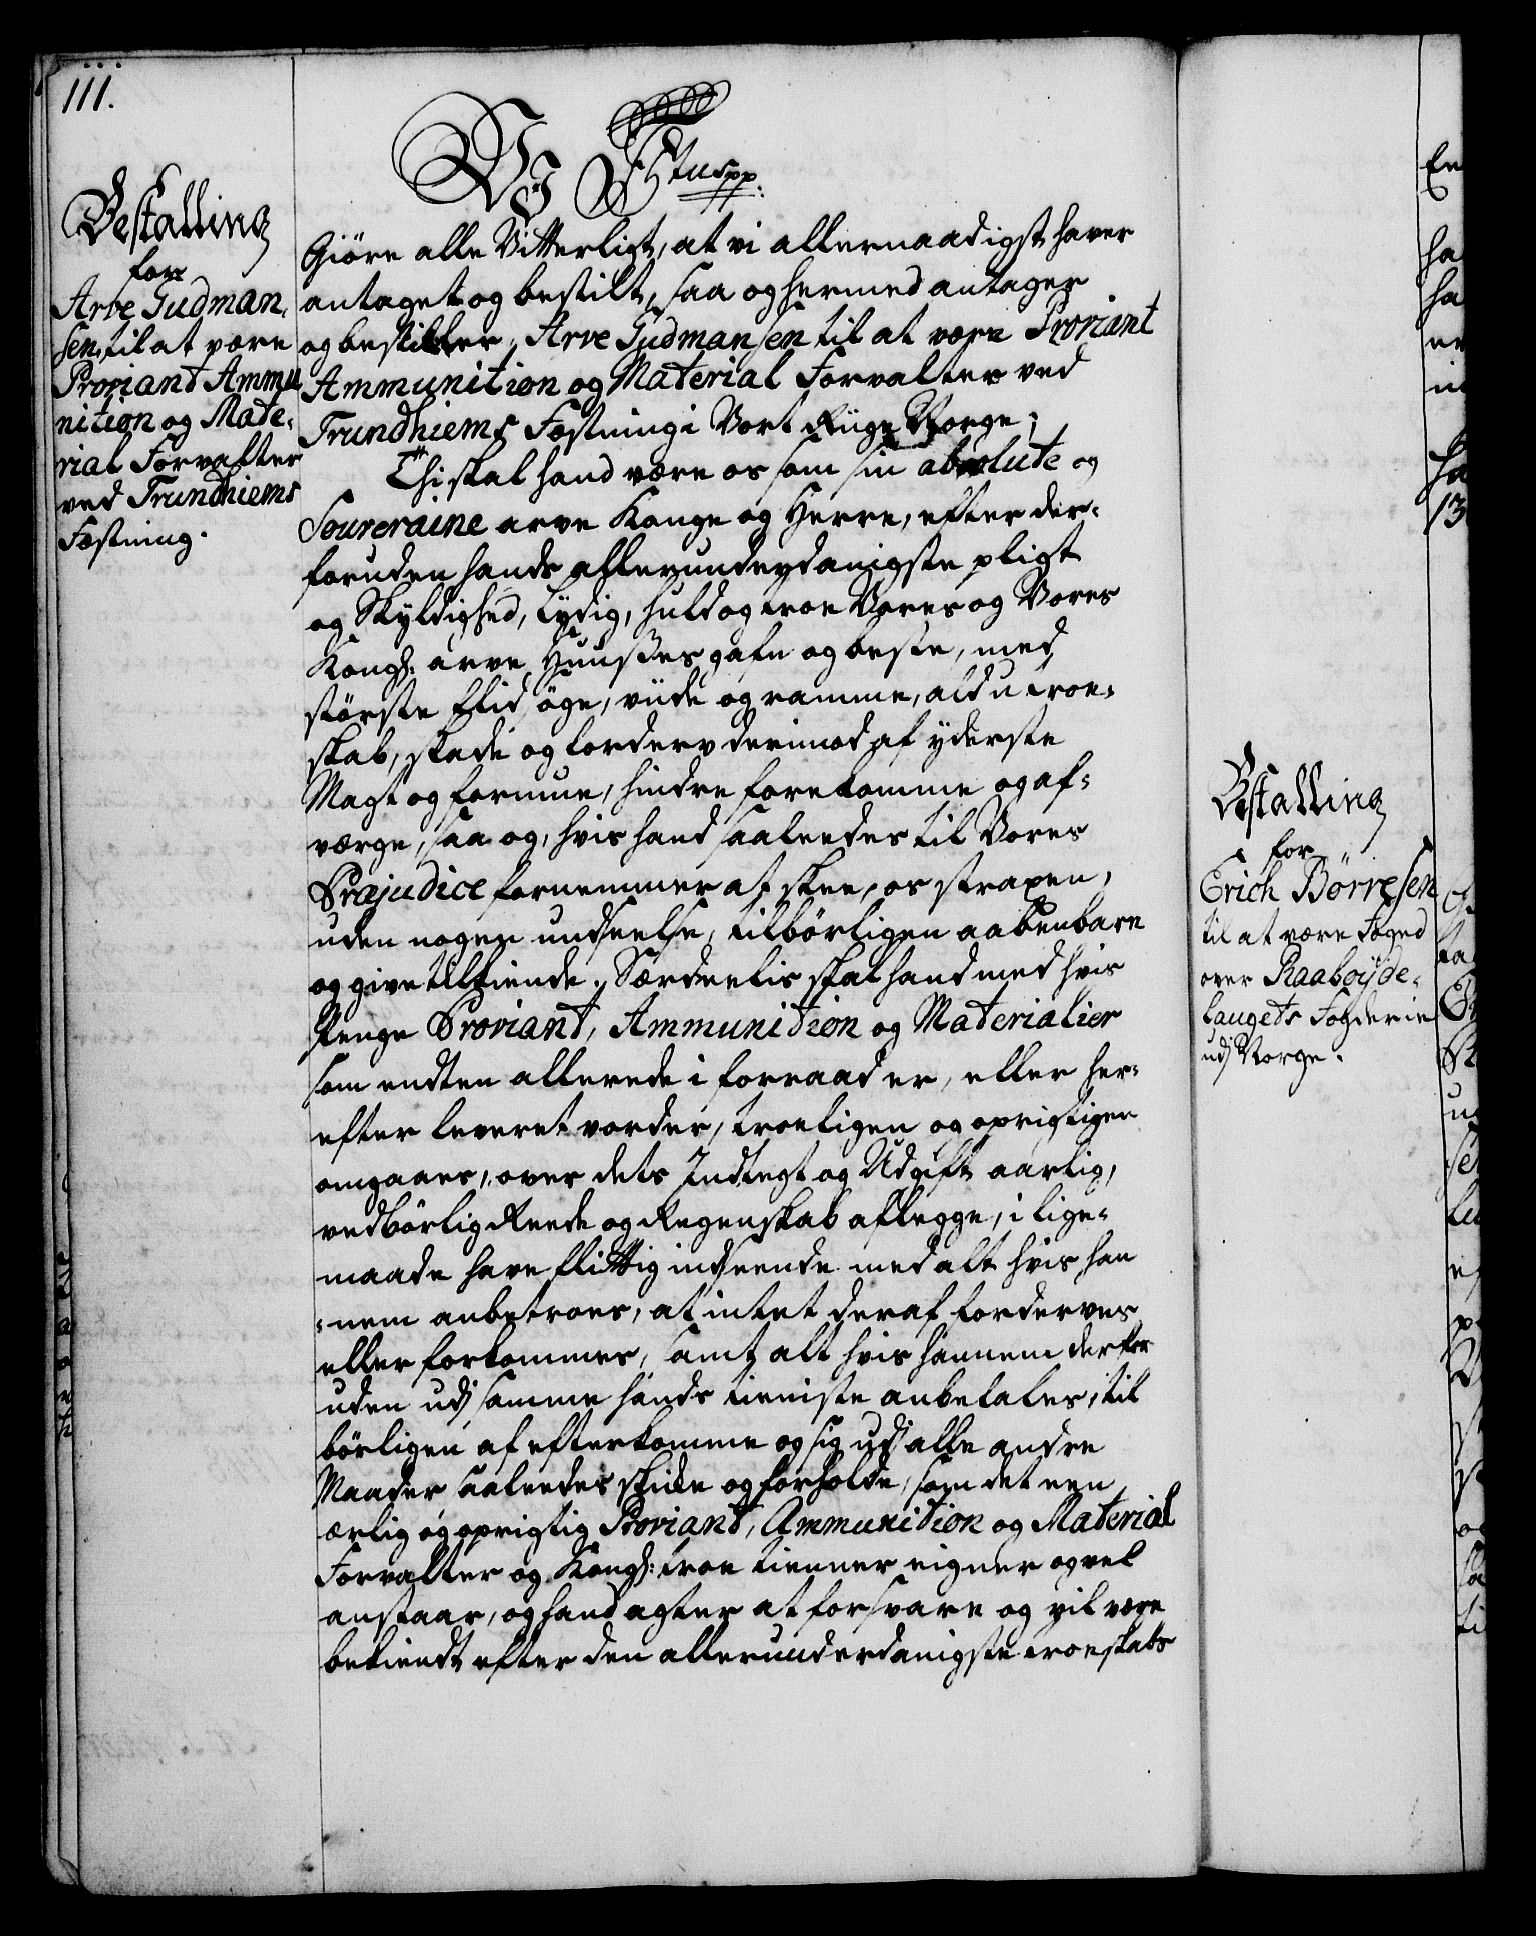 111.
Bestalling
for
Arve Gudman,
sen, til at være
Proviant Ammu
nition og Mate,
rial Forvalter
ved Trundhiems
Fæstning.
Giöre alle Vitterligt, at vi allernaadigst haver
antaget og bestilt, saa og hermed antager
og bestiller, Arve Gudmansen til at være Proviant
Ammunition og Material Forvalter ved
Trundhiems Fæstning i Vort Riige Norge;
Thi skal hand være os som sin absolute og
Souveraine arve Konge og Herre, efter der-
foruden hands allerunderdanigste pligt
og Skyldighed, lydig, huld og troe Vores og Vores
Kongl: arve Huusses gafn og beste, med
störste flid söge, viide og ramme, ald utroe-
skab, skade og forderv derimod af yderste
Magt og formue, hindre forekomme og af-
værge, saa og, hvis hand saaleedes til Vores
Præjudice fornemmer at skee, os straxen,
uden nogen undseelse, tilbörligen aabenbare
og give tilkiende. Særdeelis skal hand med hvis
Penge Proviant, Ammunition og Materialier
som endten allerede i forraad er, eller her-
efter leveret vorder, troeligen og oprigtigen
omgaaes, over dets Indtegt og Udgift aarlig,
vedbörlig Reede og Regenskab aflegge, i lige-
maade have flittig indseende med alt hvis han
-nem anbetroes, at intet deraf forderves
eller forkommes, samt alt hvis hannem derfor
uden udj samme hands tieniste anbefales, til
börligen af efterkomme og sig udj alle andre
Maader saaleedes skikke og forholde, som det een
ærlig og oprigtig Proviant, Ammunition og Material
Forvalter og Kongl: troe tienner eigner og vel
anstaar, og hand agter at forsvare og vil være
bekiendt efter den allerunderdanigste troeskabs
Bestalling
for
Erich Börresen
til at være Foged
over Raaböyde-
laugets Fogderie
udj Norge.